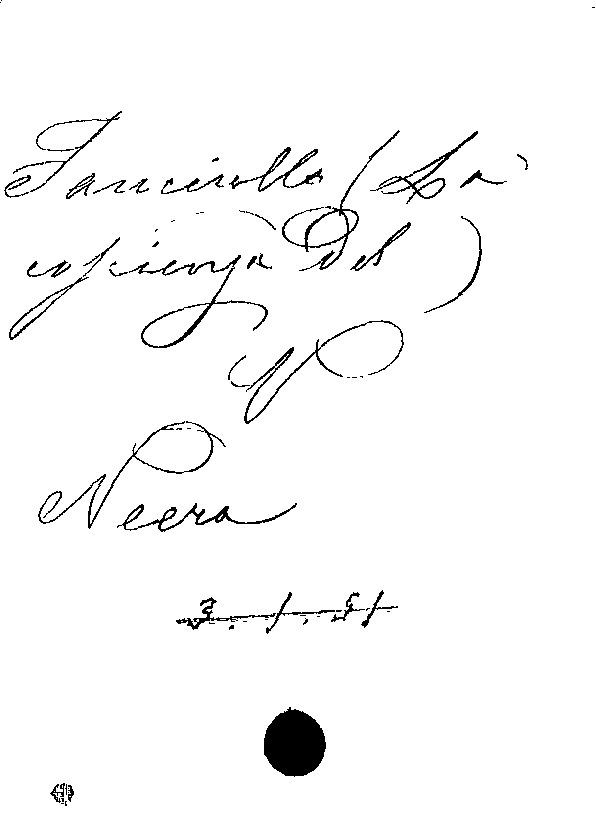 Fanciulla (La
coscienza del)
V
Neera
3. 1. 51